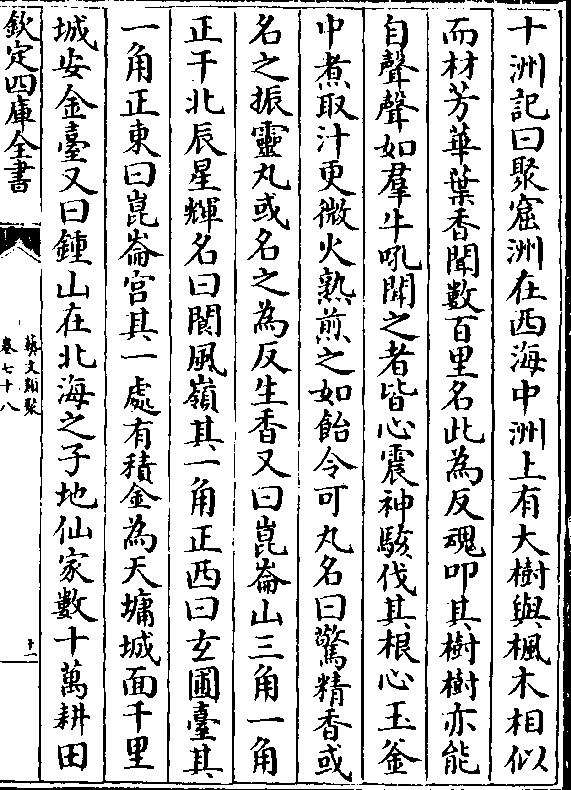 十洲記曰聚窟洲在西海中洲上有大樹與楓木相似
而材芳華葉香聞數百里名此為反魂叩其樹樹亦能
自聲聲如羣牛吼聞之者皆心震神駭伐其根心玉釜
中煮取汁更微火熟煎之如飴令可丸名曰驚精香或
名之振靈丸或名之為反生香又曰崑崙山三角一角
正干北辰星輝名曰閬風嶺其一角正西曰玄圃臺其
一角正東曰崑崙宮其一處有積金為天墉城面千里
城安金臺又曰鍾山在北海之子地仙家數十萬耕田
欽定四庫全書
藝文類聚
卷七十八
十二